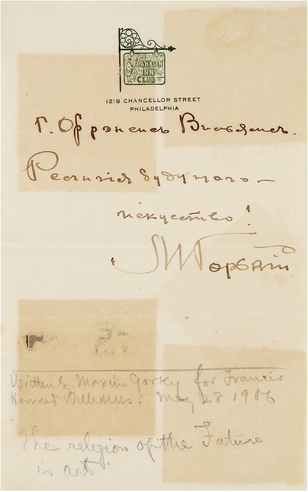 THE
FRANKLIN
INN
CLUB
1218 CHANCELLOR STREET
PHILADELPHIA
Г.
Религия будущаго —
искусство!
М Горькій
Written by Maxim Gorky for Francis
Howard Williams. May 28 1906
"The religion of the Future
is art"